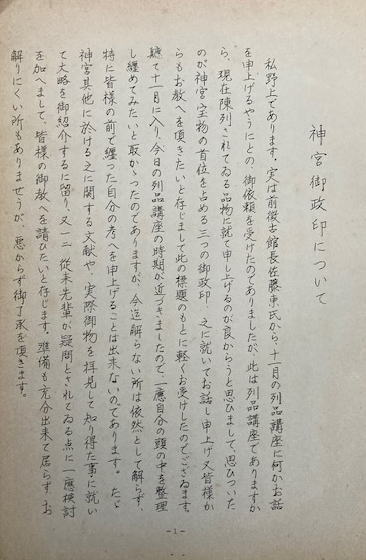 神宮御政印について
私野上であります。実は前徴古館長佐藤東氏から、十一月の列品講座に何かお話
を申上げるやうにとの御依頼を受けたのでありましたが、此は列品講座でありますか
ら、現在陳列されてゐる品物に就て申し上げるのが良からうと思ひまして、思ひついた
のが神宮宝物の首位を占める三つの御政印、之に就いてお話し申上げ又皆様か
らもお教へを頂きたいと存じまして此の標題のもとに軽くお受けしたのでございます。
聴て十一月に入り、今日の列品講座の時期が近づきましたので、一應自分の頭の中を整理
し纏めてみたいと取かゝったのでありますが、今迄解らない所は依然として解らず、
特に皆様の前で纏った自分の考へを申上げることは出来ないのであります。たゞ
神宮其他に於ける之に関する文献や、実際御物を拝見して知り得た事に就い
て大略を御紹介するに留り、又一二従来先輩が疑問とされてゐる点に一應検討
を加へまして、皆様の御教へを請ひたいと存じます。準備も充分出来て居らず、お
解りにくい所もありませうが、悪からず御了承を頂きます。
-1-